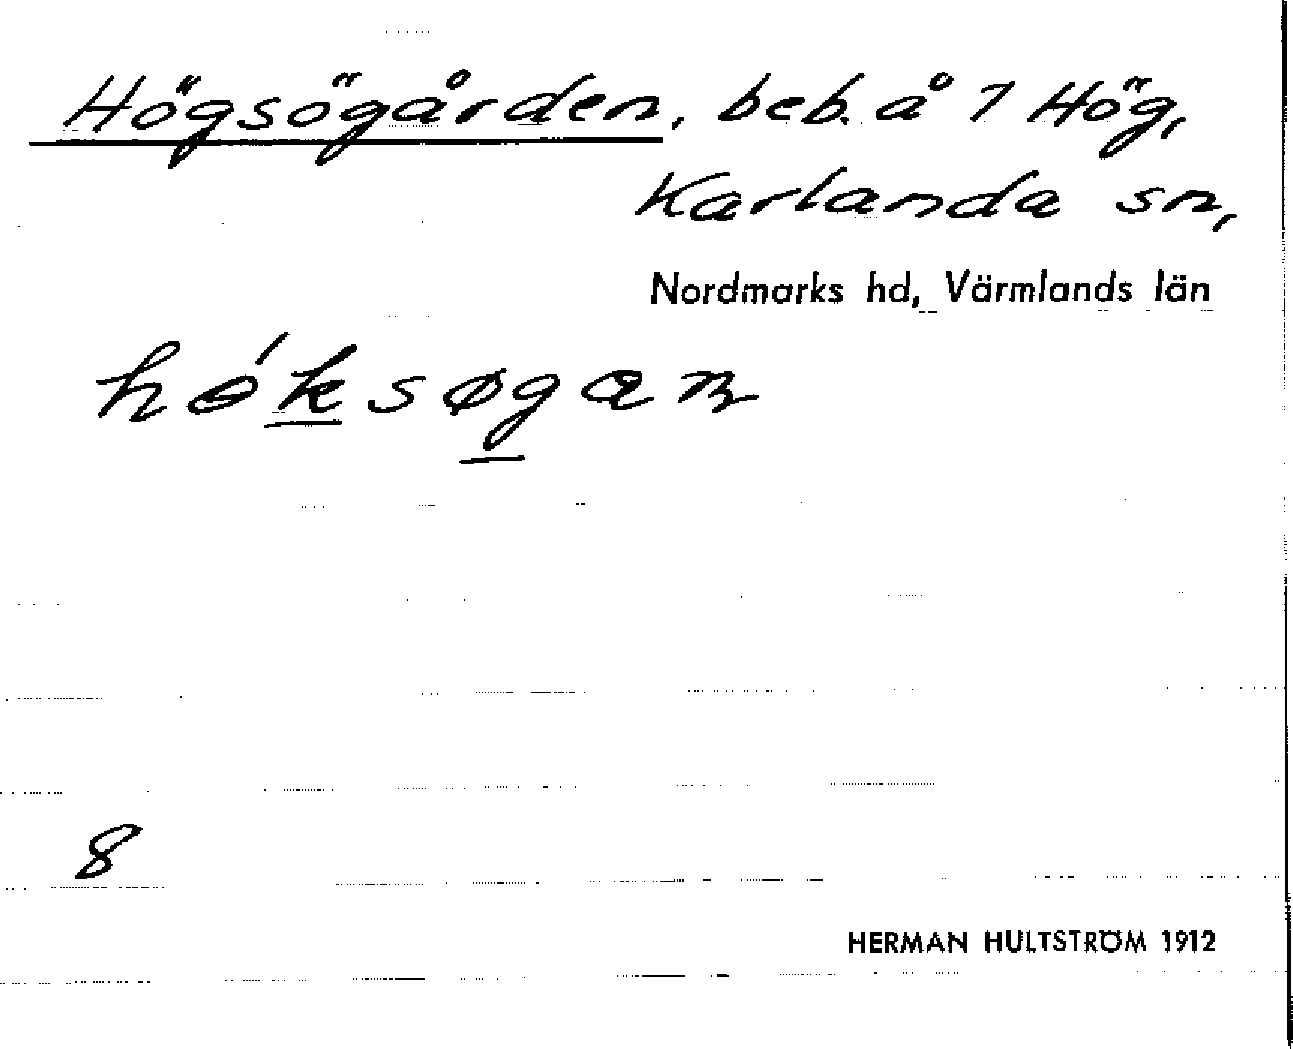 Högsögården, beb. å 7 Hög,
Karlanda sn,
Nordmarks hd, Värmlands län
hǿksøgan
8
HERMAN HULTSTRÖM 1912